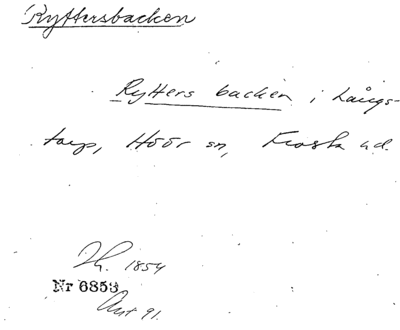 Ryttersbacken
Rytters backen i Långs-
torp, Höör sn, Frosta hd.
Th. 1854
Nr 6853
Ant 91.